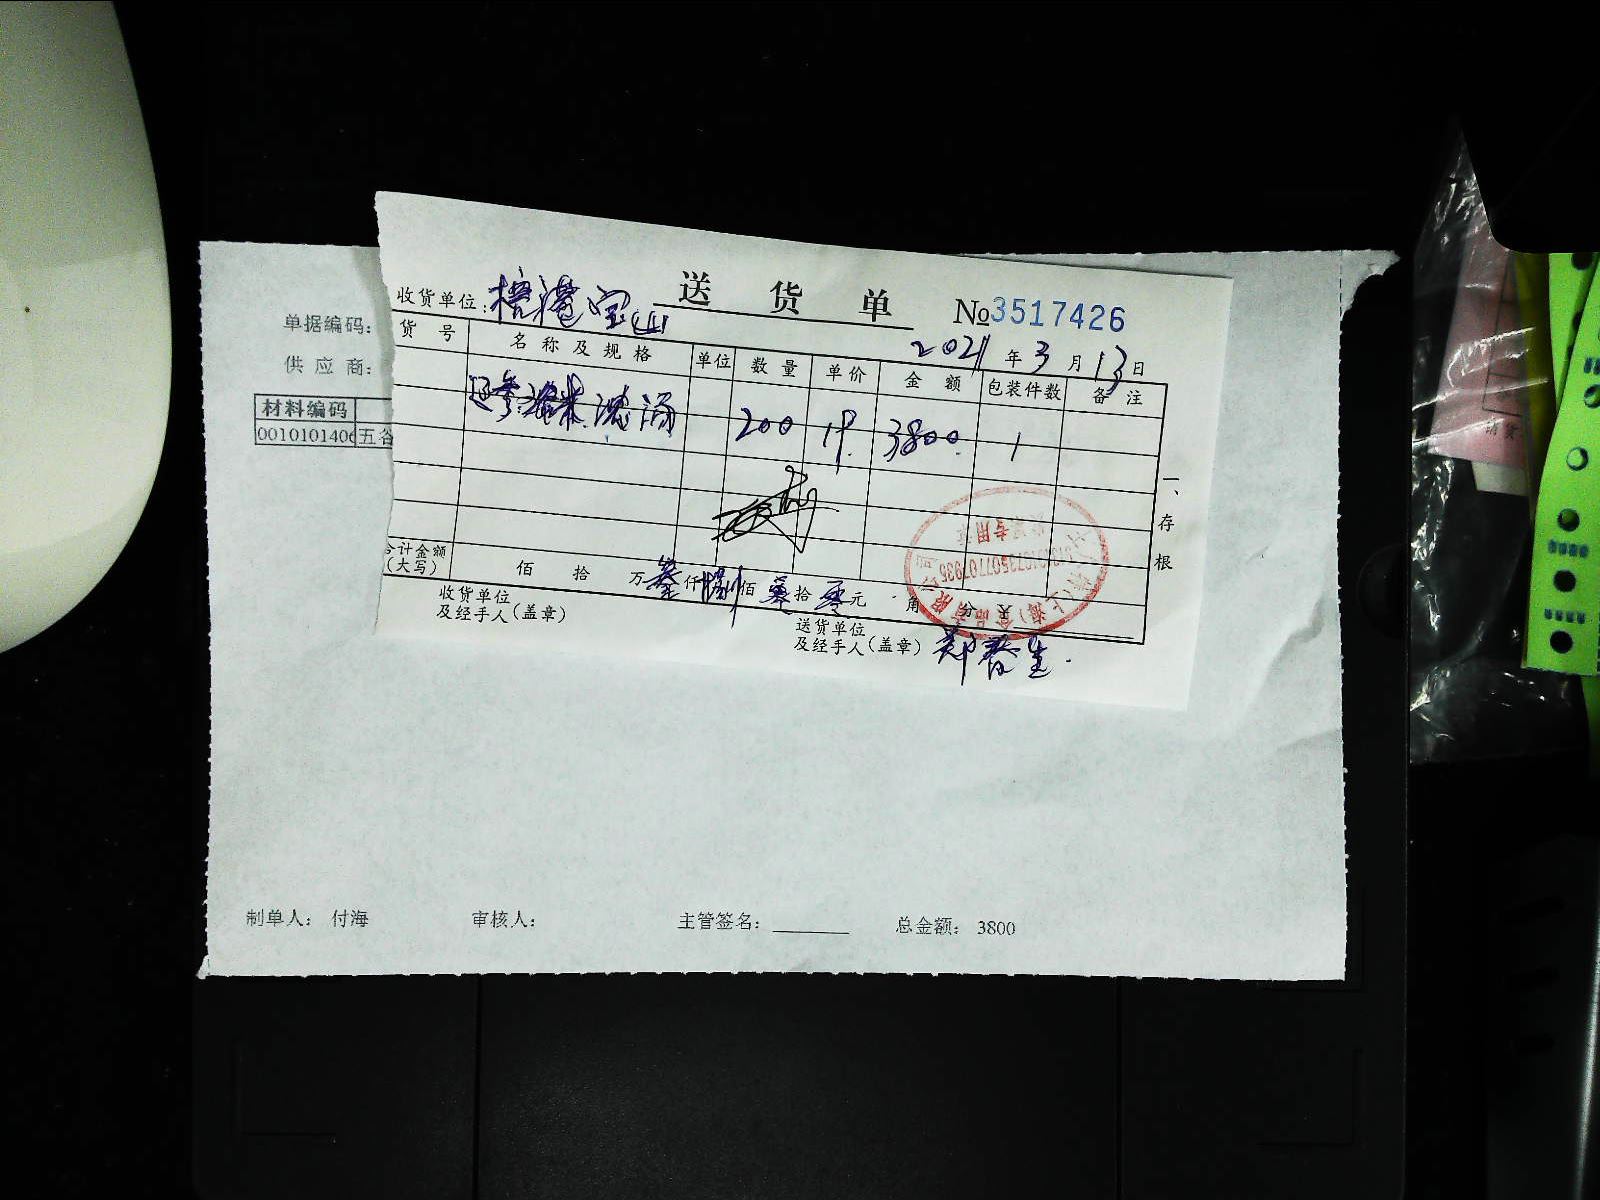 送货单 №3517426
收货单位:
2021年3月13日
货号 名称及规格 单位 数量 单价 金额 包装件数 备注
200 19. 3800. 1
一、存根
合计金额(大写) 佰 拾 万叁仟捌佰零拾零元 角 分
收货单位及经手人(盖章)
送货单位及经手人(盖章) 郑春生.
单据编码:
供应商:
材料编码
0010101406 五谷
制单人: 付海 审核人: 主管签名: ________ 总金额: 3800